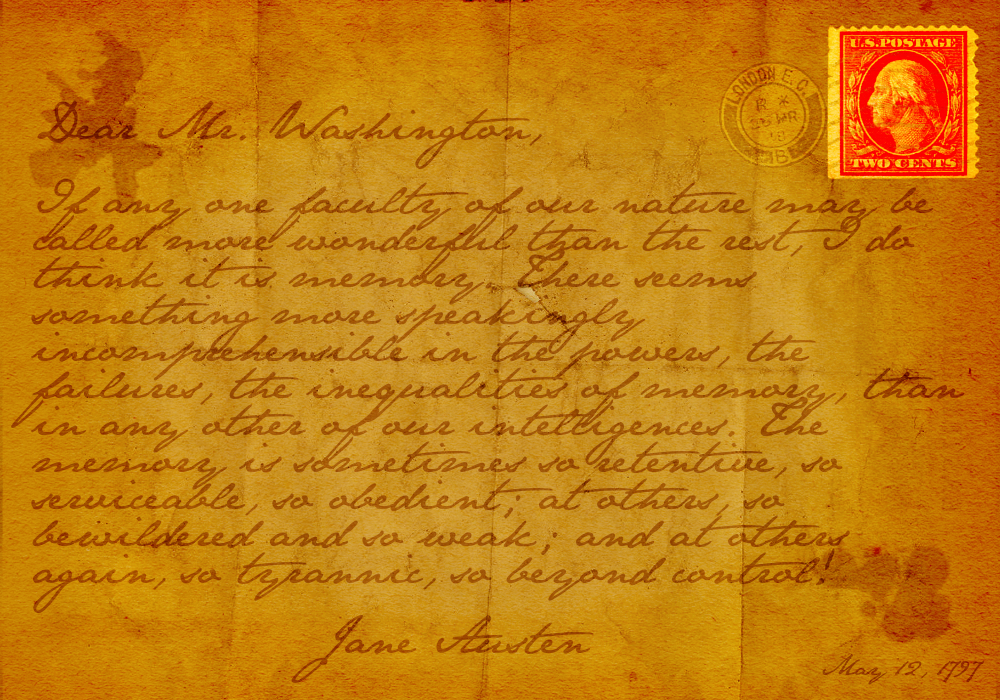 U.S.POSTAGE
LONDON E.C.
TWO CENTS
Dear Mr. Washington,
If any one faculty of our nature may be
called more wonderful than the rest, I do
think it is memory. There seems
something more speakingly
incomprehensible in the powers, the
failures, the inequalities of memory, than
in any other of our intelligences. The
memory is sometimes so retentive, so
serviceable, so obedient; at others, so
bewildered and so weak; and at others
again, so tyrannic, so beyond control!
Jane Austen
May 12, 1797